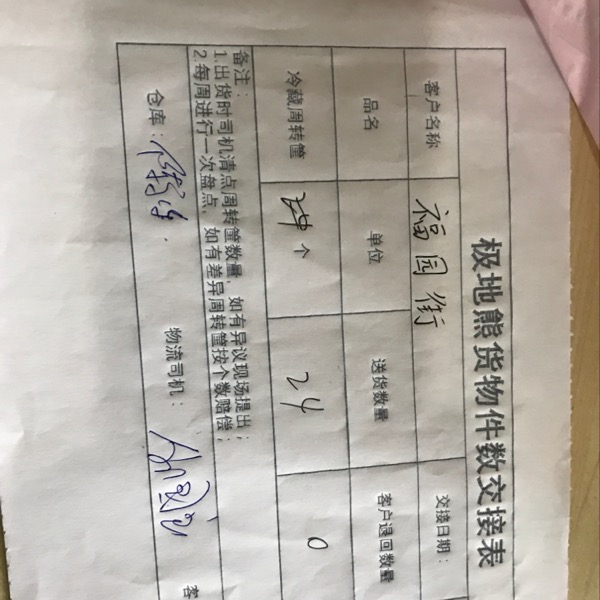 极地熊货物件数交接表
客户名称 福园街 交接日期：
品名 单位 送货数量 客户退回数量
冷藏周转筐 个 24 0
备注：
1.出货时司机清点周转筐数量，如有异议现场提出；
2.每周进行一次盘点，如有差异周转筐按个数赔偿；
仓库： 物流司机： 客